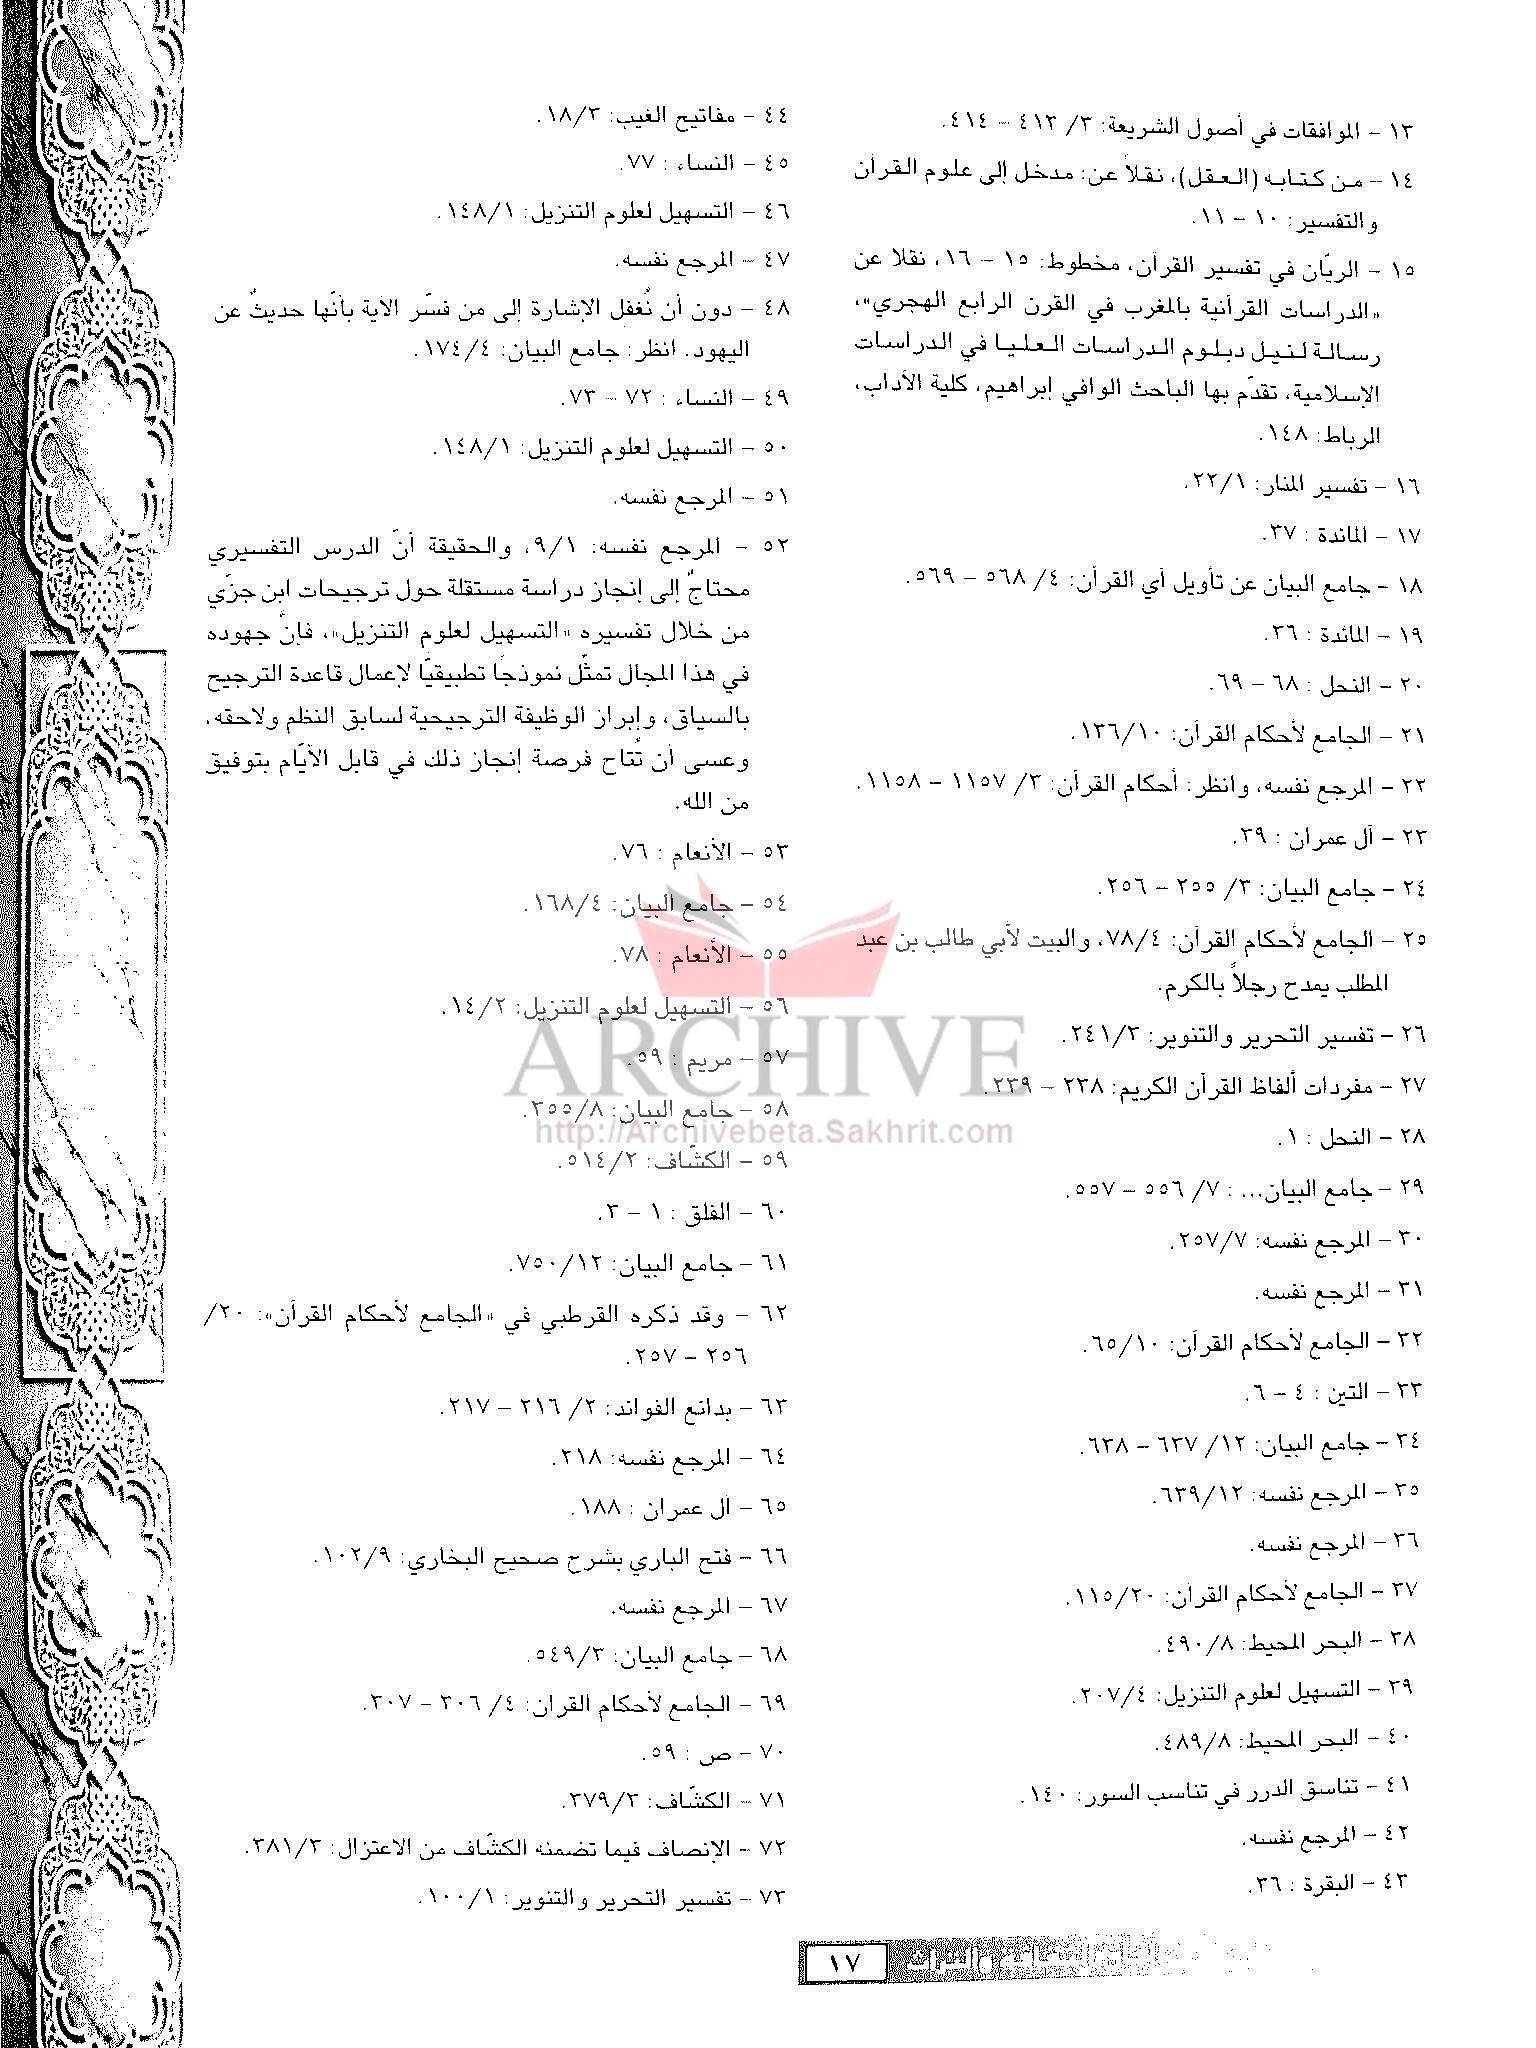 ١٣ - الموافقات في أصول الشريعة: ٣/ ٤١٣ - ٤١٤.
١٤ - من كتابه (العقل)، نقلاً عن: مدخل إلى علوم القرآن
والتفسير: ١٠ - ١١.
١٥ - الريّان في تفسير القرآن، مخطوط: ١٥ - ١٦، نقلا عن
«الدراسات القرآنية بالمغرب في القرن الرابع الهجري»،
رسالة لنيل دبلوم الدراسات العليا في الدراسات
الإسلامية، تقدّم بها الباحث الوافي إبراهيم، كلية الآداب،
الرباط: ١٤٨.
١٦ - تفسير المنار: ٢٢/١.
١٧ - المائدة : ٣٧.
١٨ - جامع البيان عن تأويل آي القرآن: ٤/ ٥٦٨ - ٥٦٩.
١٩ - المائدة : ٣٦.
٢٠ - النحل : ٦٨ - ٦٩.
٢١ - الجامع لأحكام القرآن: ١٣٦/١٠.
٢٢ - المرجع نفسه، وانظر: أحكام القرآن: ٣/ ١١٥٧ - ١١٥٨.
٢٣ - آل عمران : ٣٩.
٢٤ - جامع البيان: ٣/ ٢٥٥ - ٢٥٦.
٢٥ - الجامع لأحكام القرآن: ٧٨/٤، والبيت لأبي طالب بن عبد
المطلب يمدح رجلاً بالكرم.
٢٦ - تفسير التحرير والتنوير: ٢٤١/٣.
٢٧ - مفردات ألفاظ القرآن الكريم: ٢٣٨ - ٢٣٩.
٢٨ - النحل : ١.
٢٩ - جامع البيان... : ٧/ ٥٥٦ - ٥٥٧.
٣٠ - المرجع نفسه: ٢٥٧/٧.
٣١ - المرجع نفسه.
٣٢ - الجامع لأحكام القرآن: ٦٥/١٠.
٣٣ - التين : ٤ - ٦.
٣٤ - جامع البيان: ١٢/ ٦٣٧ - ٦٣٨.
٣٥ - المرجع نفسه: ٦٣٩/١٢.
٣٦ - المرجع نفسه.
٣٧ - الجامع لأحكام القرآن: ١١٥/٢٠.
٣٨ - البحر المحيط: ٤٩٠/٨.
٣٩ - التسهيل لعلوم التنزيل: ٢٠٧/٤.
٤٠ - البحر المحيط: ٤٨٩/٨.
٤١ - تناسق الدرر في تناسب السور: ١٤٠.
٤٢ - المرجع نفسه.
٤٣ - البقرة : ٣٦.
٤٤ - مفاتيح الغيب: ١٨/٣.
٤٥ - النساء : ٧٧.
٤٦ - التسهيل لعلوم التنزيل: ١٤٨/١.
٤٧ - المرجع نفسه.
٤٨ - دون أن نُغفل الإشارة إلى من فسّر الآية بأنّها حديثٌ عن
اليهود. انظر: جامع البيان: ١٧٤/٤.
٤٩ - النساء : ٧٢ - ٧٣.
٥٠ - التسهيل لعلوم التنزيل: ١٤٨/١.
٥١ - المرجع نفسه.
٥٢ - المرجع نفسه: ٩/١، والحقيقة أنّ الدرس التفسيري
محتاجٌ إلى إنجاز دراسة مستقلة حول ترجيحات ابن جزّي
من خلال تفسيره «التسهيل لعلوم التنزيل»، فإنّ جهوده
في هذا المجال تمثّل نموذجًا تطبيقيًا لإعمال قاعدة الترجيح
بالسياق، وإبراز الوظيفة الترجيحية لسابق النظم ولاحقه،
وعسى أن تُتاح فرصة إنجاز ذلك في قابل الأيّام بتوفيق
من الله.
٥٣ - الأنعام : ٧٦.
٥٤ - جامع البيان: ١٦٨/٤.
٥٥ - الأنعام : ٧٨.
٥٦ - التسهيل لعلوم التنزيل: ١٤/٢.
٥٧ - مريم : ٥٩.
٥٨ - جامع البيان: ٣٥٥/٨.
٥٩ - الكشّاف: ٥١٤/٢.
٦٠ - الفلق : ١ - ٣.
٦١ - جامع البيان: ٧٥٠/١٢.
٦٢ - وقد ذكره القرطبي في «الجامع لأحكام القرآن»: ٢٠/
٢٥٦ - ٢٥٧.
٦٣ - بدائع الفوائد: ٢/ ٢١٦ - ٢١٧.
٦٤ - المرجع نفسه: ٢١٨.
٦٥ - آل عمران : ١٨٨.
٦٦ - فتح الباري بشرح صحيح البخاري: ١٠٢/٩.
٦٧ - المرجع نفسه.
٦٨ - جامع البيان: ٥٤٩/٣.
٦٩ - الجامع لأحكام القرآن: ٤/ ٣٠٦ - ٣٠٧.
٧٠ - ص : ٥٩.
٧١ - الكشّاف: ٣٧٩/٣.
٧٢ - الإنصاف فيما تضمنه الكشّاف من الاعتزال: ٣٨١/٣.
٧٣ - تفسير التحرير والتنوير: ١٠٠/١.
ARCHIVE
http://Archivebeta.Sakhrit.com
الثقافة والتراث
١٧